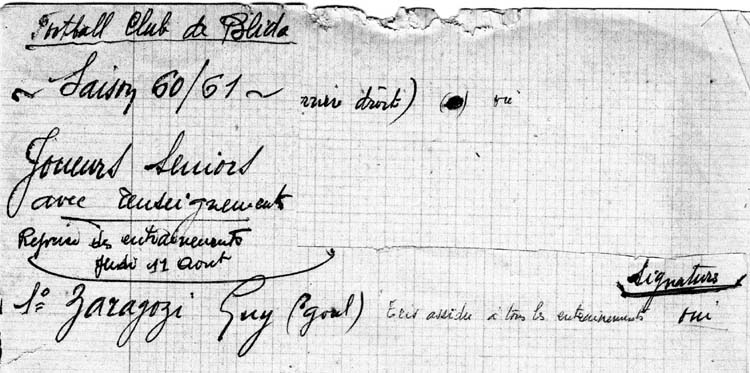 Football Club de Blida
~ Saison 60/61 ~
droite) oui
Joueurs Seniors
avec renseignements
Reprise des entrainements
Jeudi 11 Aout
Signature
1° Zaragozi Guy (goal) Très assidu à tous les entrainements oui